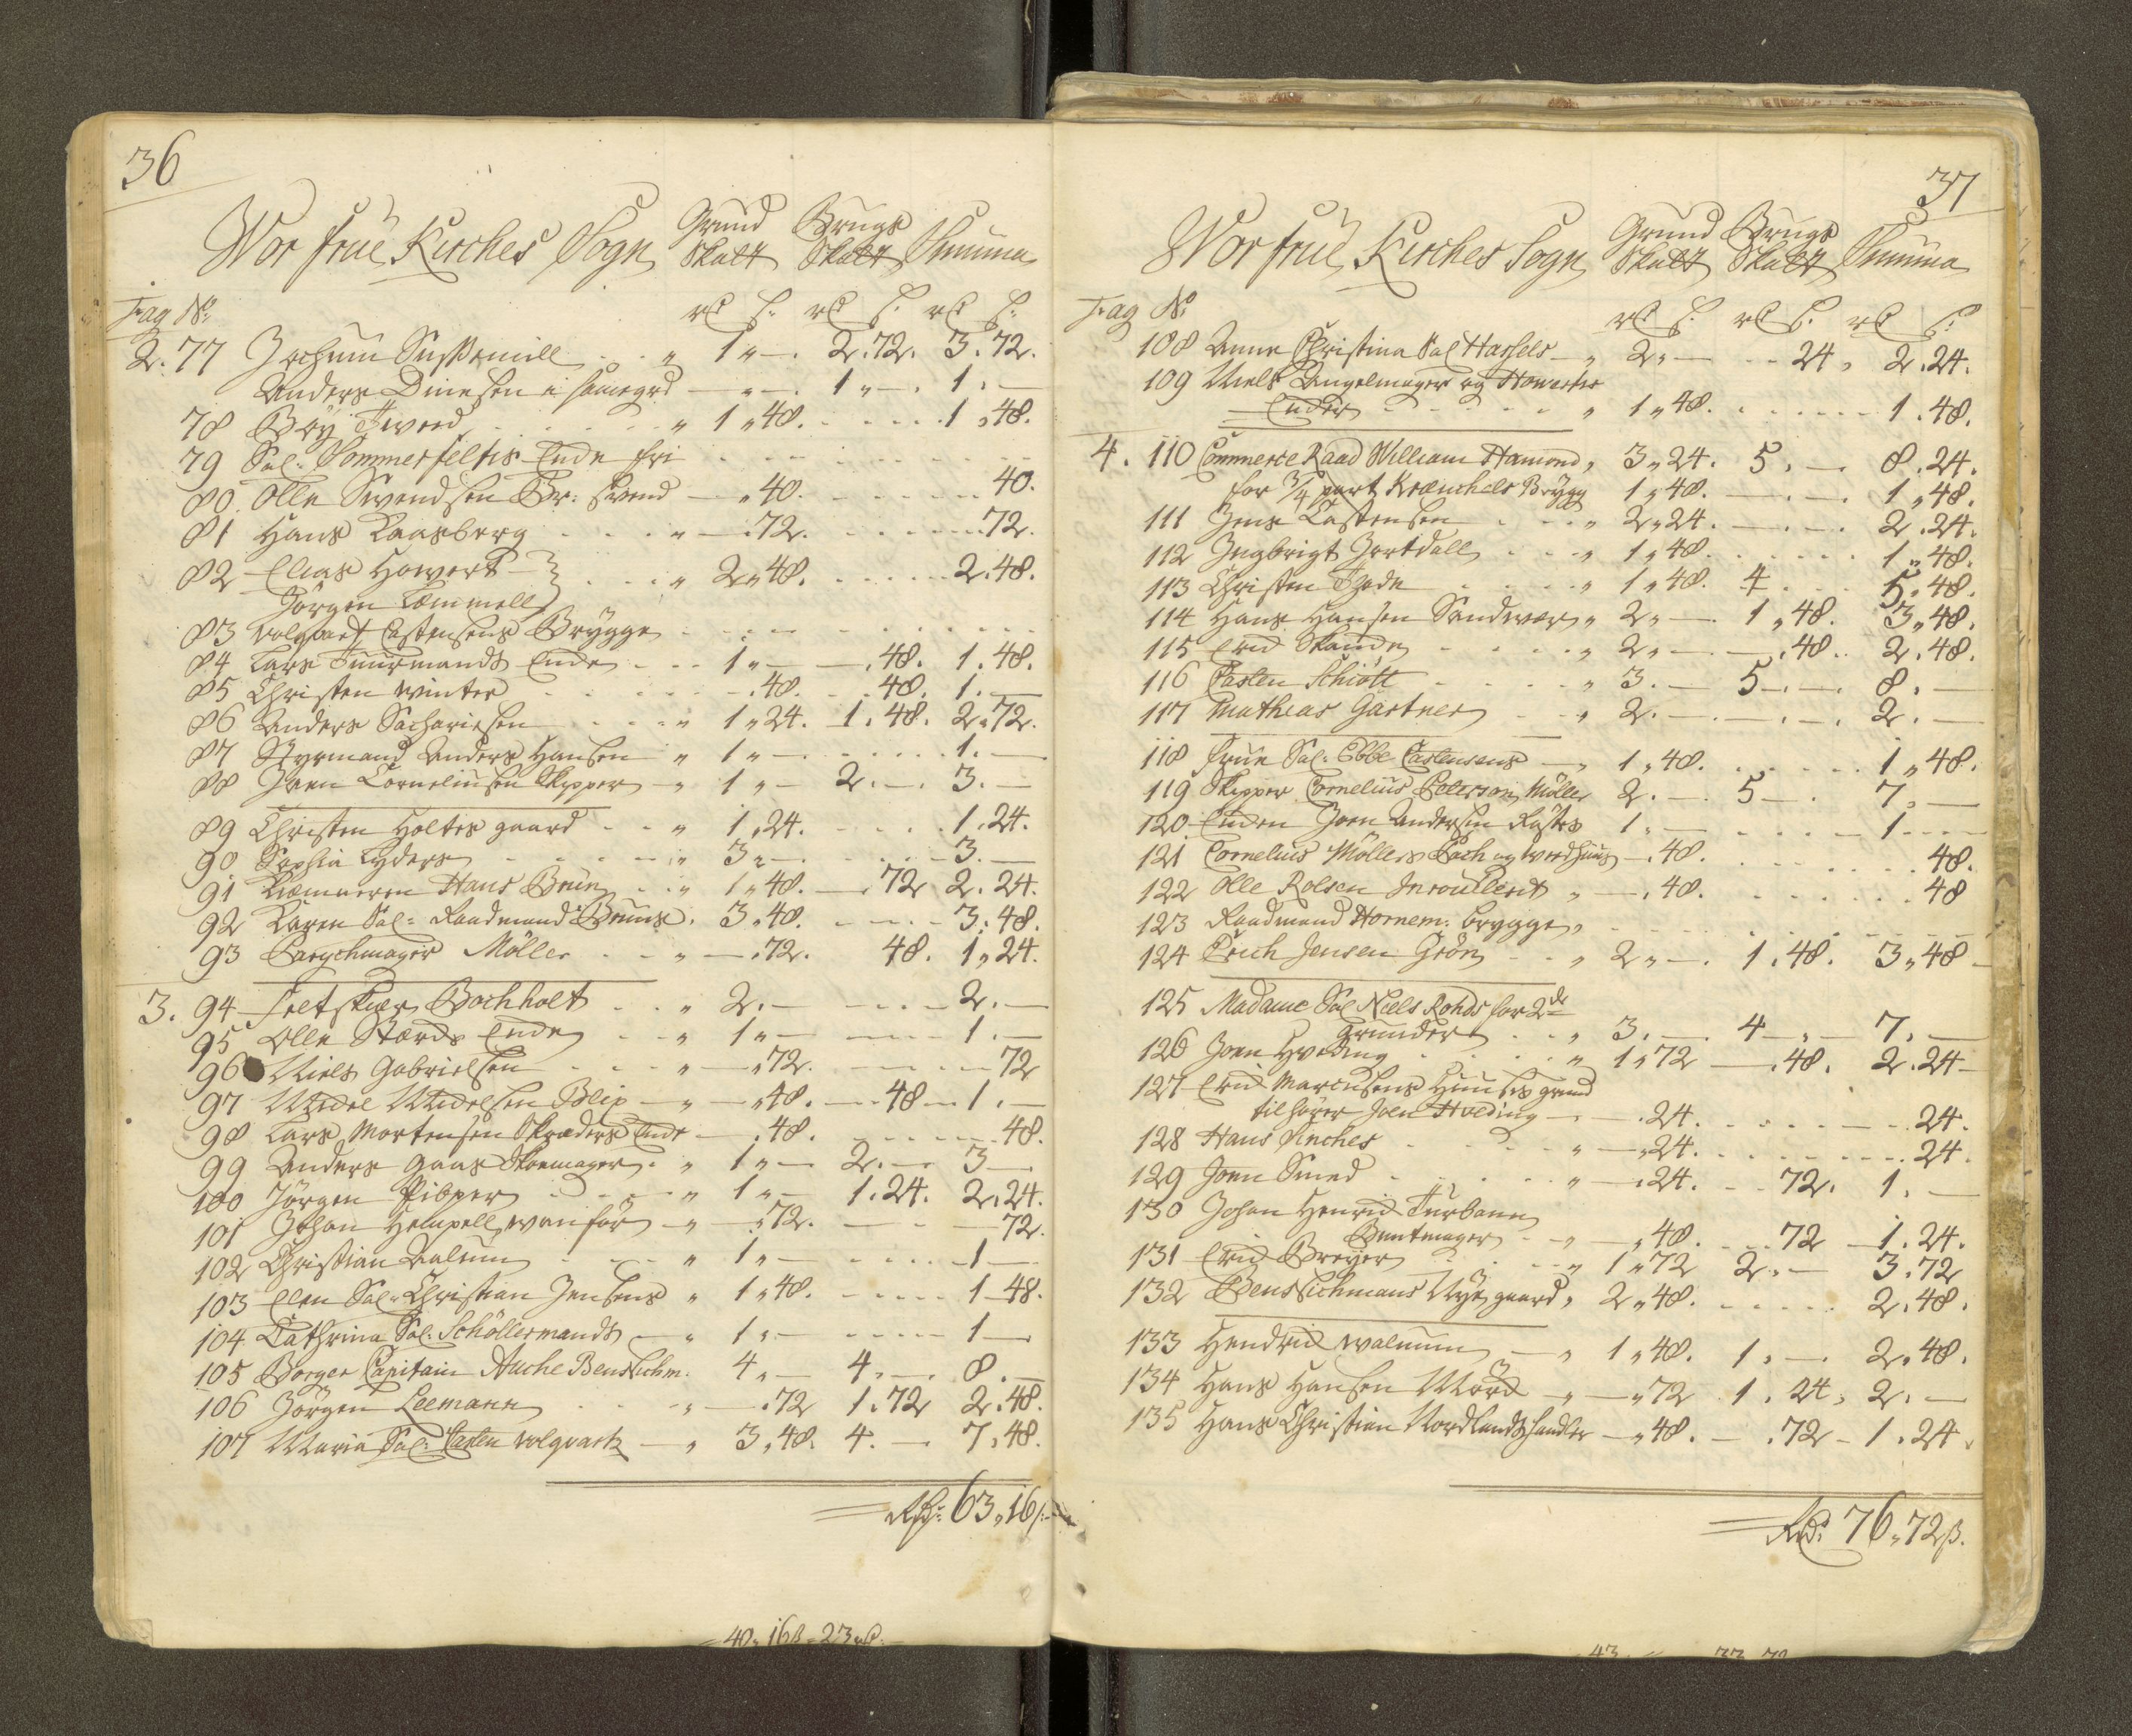 36
Wor frue Kirches Sogn Grund Skatt Brugs Skatt Summa
Frag No: rd s. rd s. rd s.
2. 77 Jochum Sussemill 1 " — . 2. 72. 3. 72.
Anders Dinesen i samegrd — " — . 1 " — . 1 . —
78 Boÿ Tweed " 1 " 48. 1 " 48.
79 Sal: Sommerfeltis Ende fri
80. Olle Swendsen Br: Svend — " 40. 40.
81 Hans Kaasberg " — . 72. 72.
82 Elias Howert " 2 " 48. 2. 48.
Jörgen Cämmell
83 Volqvart Castensens Brÿgge
84 Lars Fuurmands Ende 1 " — — . 48. 1. 48.
85 Christen Winter — . 48. 48. 1. —
86 Anders Sachariesen " 1 " 24. 1. 48. 2. 72.
87 Styrmand Anders Hansen " 1 " — 1. —
88 Joen Corneliusen Skipper " 1 " — 2. — . 3. —
89 Christen Holtes gaard " 1. 24. 1. 24.
90 Sophia Lyders " 3 " — 3. —
91 Kiemneren Hans Bruun " 1 " 48. — . 72 2. 24.
92 Karen Sal: Raadmand Bruuns. 3. 48. 3. 48.
93 Parychmager Möller " — . 72. 48. 1 " 24.
3. 94 Feltskier Bochholt " 2. — 2. —
95 Olle Stærds Ende " 1 " — 1. —
96 Niels Gabrielsen " — " 72. 72
97 Michel Michelsen Blix — " — " 48. 48 — 1. —
98 Lars Mortensen Skræders Ende — . 48. 48.
99 Anders Gaas Skoemager. " 1 " — 2. — 3 —
100 Jörgen Pibper " 1 " — 1. 24. 2. 24.
101 Johan Hempell wanför — " — . 72. 72.
102 Christian Aalum " 1 " — 1 —
103 Elen Sal: Christian Jensens " 1 " 48. 1 — 48.
104 Cathrina Sal: Schöllermands — " 1 " — 1 —
105 Borger Capitain Anche Bens Lichm. 4 " — 4 " — . 8. —
106 Jörgen Leemann " — . 72 1. 72 2. 48.
107 Maria Sal: Casten Volqvartz — " 3. 48. 4. — 7. 48.
63 " 16 s.
40 " 16 s 23 rd.
37
Wor frue Kirches Sogn Grund Skatt Brugs Skatt Summa
Frag No rd s. rd s. rd s.
108 Anne Christina Sal Hassels — " 2 " — 24 " 2. 24.
109 Niels Angelmager og Howerts
Ender " 1 " 48. 1. 48.
4. 110 Commerce Raad William Hamond " 3 " 24. 5. — . 8. 24.
for 3/4 part Kræmhels Brygg 1 " 48. — . — . 1 " 48.
111 Jens Castensen " 2 " 24. — . — . 2. 24.
112 Ingbrigt Jortdall " 1 " 48. 1 " 48.
113 Christen Tzode " 1 " 48. 4. 5. 48.
114 Hans Hansen Sandwær " 2 " — . 1 " 48. 3 " 48.
115 Erich Skaude " 2 " — . — . 48. 2. 48.
116 Casten Schiött " 3. — 5 — . — . 8. —
117 Mathias Gartner " 2. — . — . — . 2. —
118 Frue Sal: Ebbe Castensens — " 1 " 48. 1 " 48.
119 Skipper Cornelius Peterson Möller 2. — . 5 — . 7. —
120. Enden Joen Andersen Röstes 1. — 1
121 Cornelius Möllers Pach og werdhuus — . 48. 48.
122 Olle Rolsen " — . 48. 48
123 Raadmand Hornem: Brygge "
124 Erich Jensen Grön " 2 " — . 1. 48. 3 " 48 —
125 Madame Sal Niels Rohds for 2de
Grunder " 3. — 4 — " — 7. —
126 Joen Hveding " 1 " 72 — . 48. 2. 24 —
127 Erich Marcusens Huuses grund
tilhører Joen Hveding — . 24. 24.
128 Hans Finches " — " 24. 24.
129 Joen Smed " — . 24. 72. 1. —
130 Johan Henrich Turbann
Buntmager — " — " 48. 72 — 1. 24.
131 Erich Breÿer " 1 " 72 2. — 3. 72
132 Bens Lichmans Nÿe gaard " 2 " 48. 2. 48.
133 Hendrich Walnum — " 1 " 48. 1. — . 2. 48.
134 Hans Hansen Morch — " — " 72 1. 24. 2. —
135 Hans Christian Nordlandshandler — " 48. — . 72 — 1. 24.
Rd: 76 " 72 s.